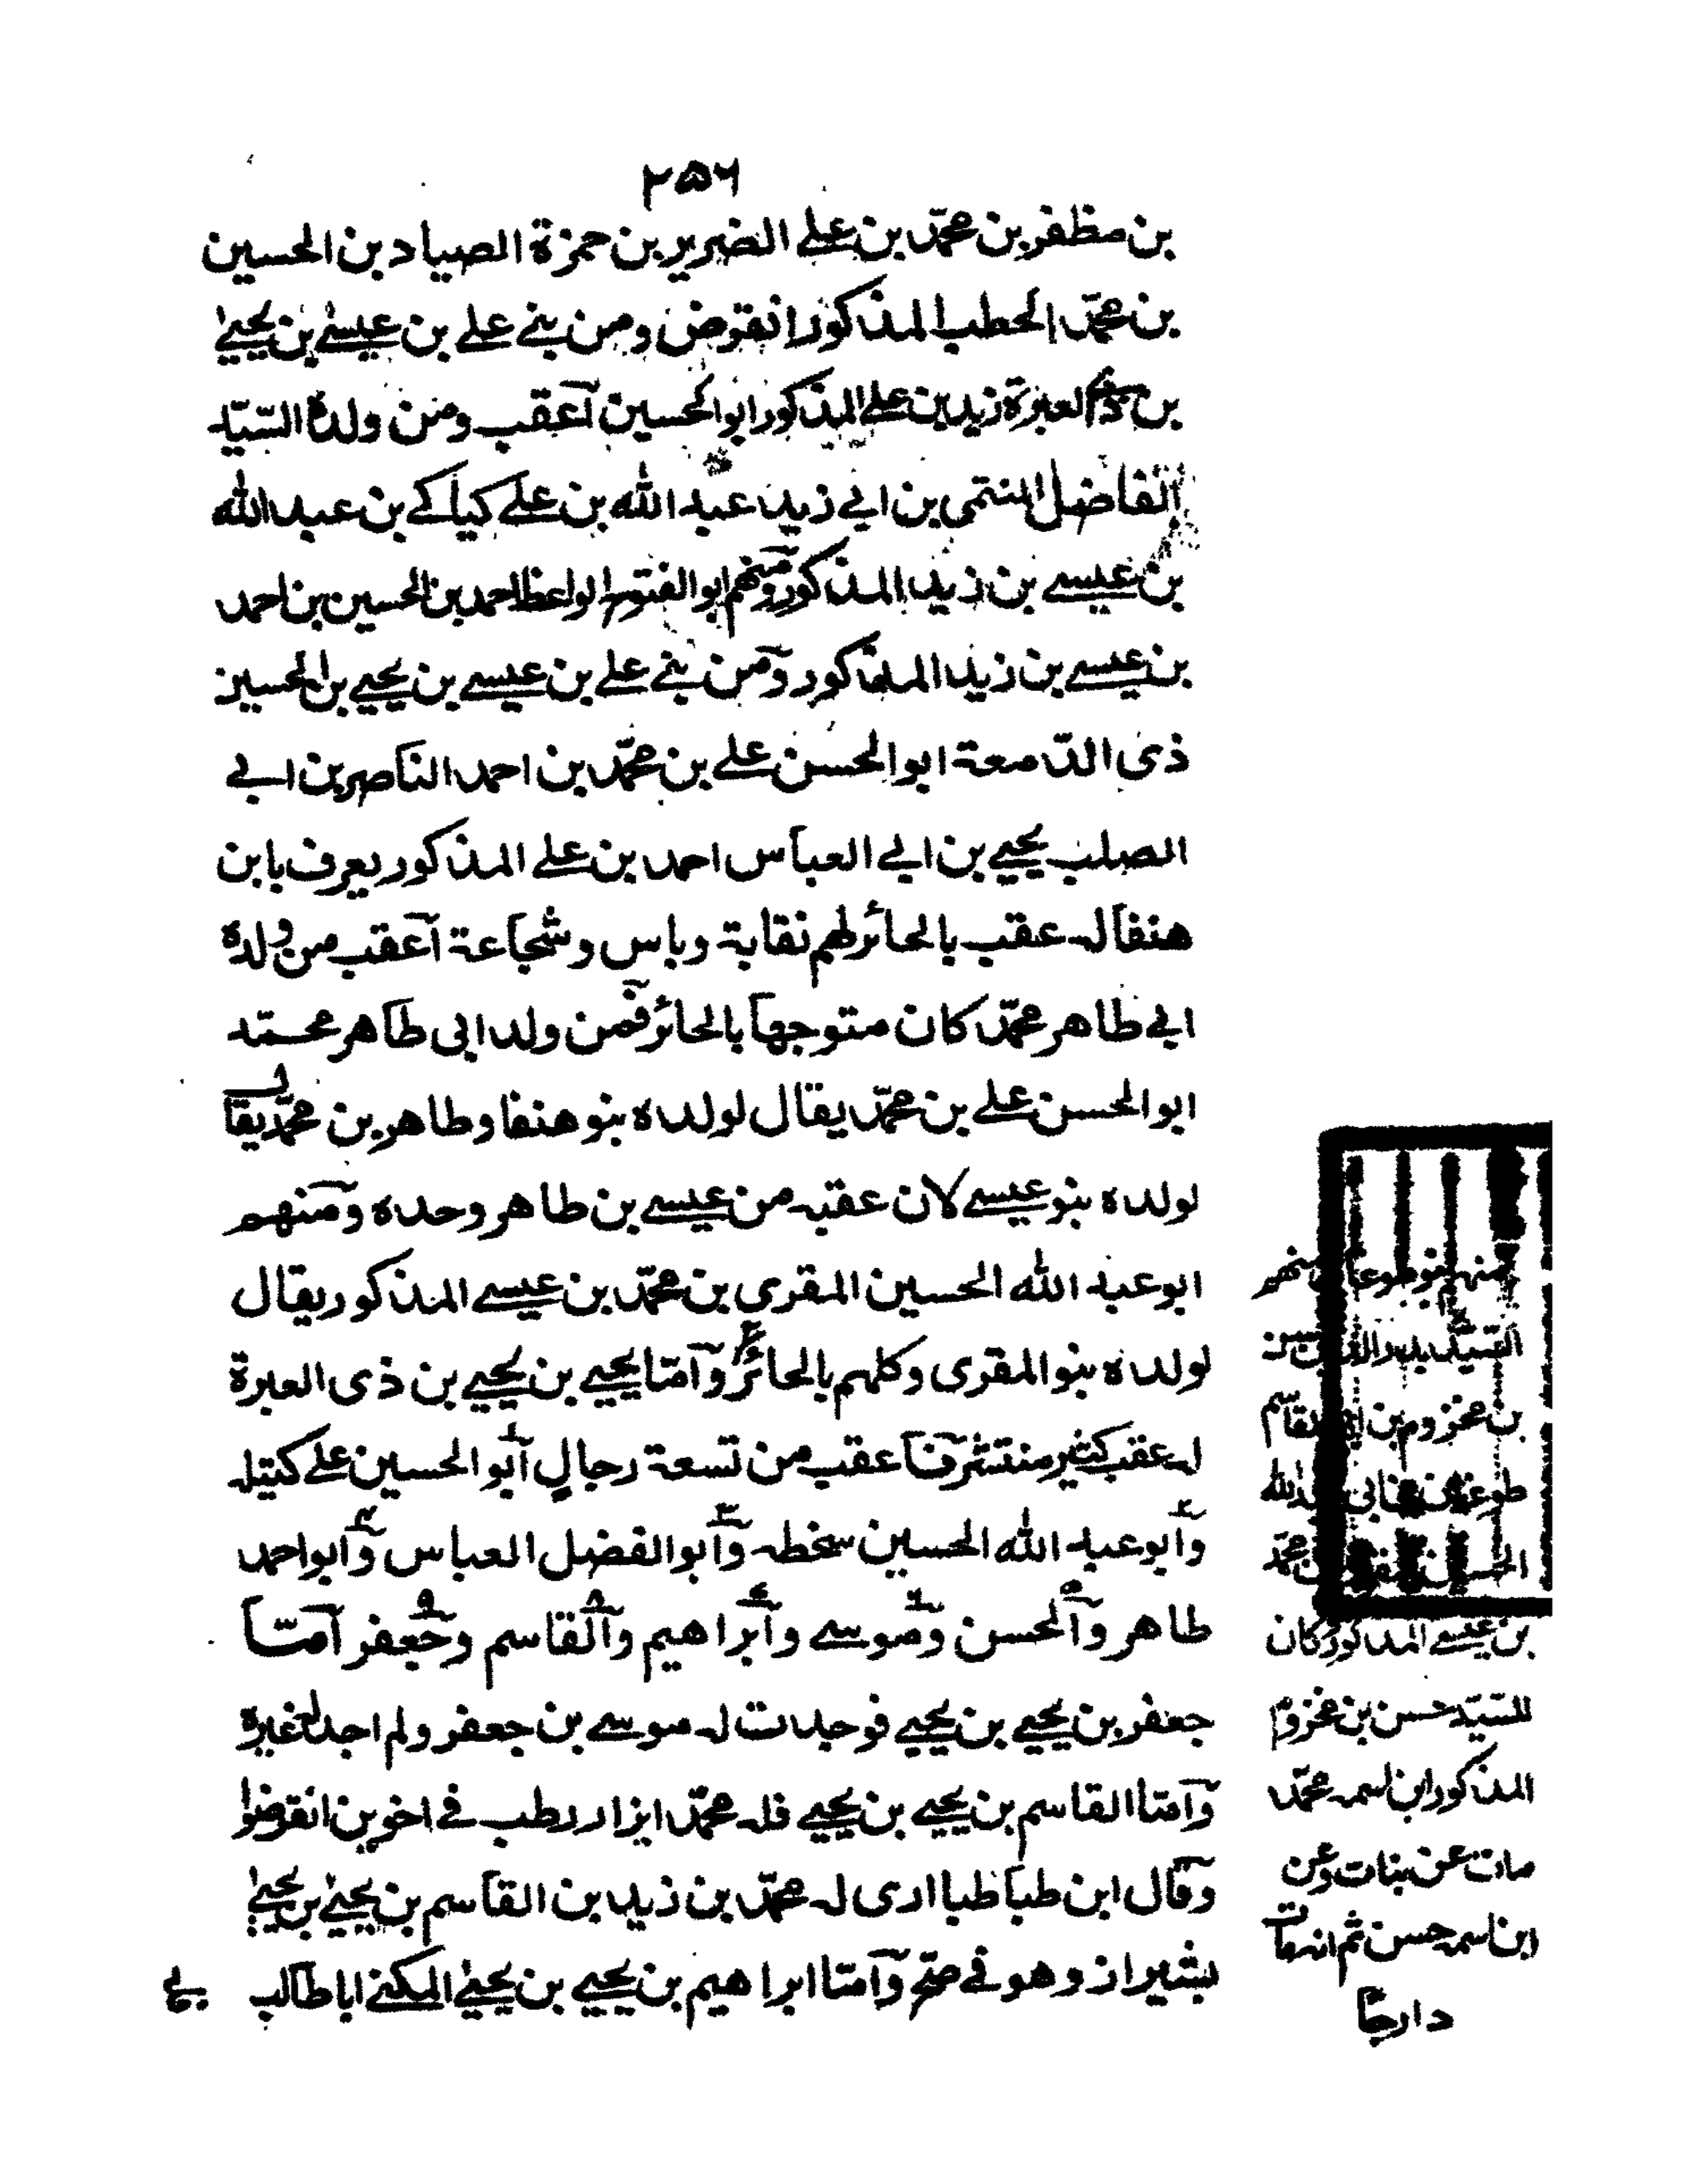 ٢٥٦
بن مظفر بن محمّد بن علي الضرير بن حمزة الصياد بن الحسين
بن محمّد الحطب المذكور انقرض ومن بني علي بن عيسى بن يحيى
بن العبرة زيد بن علي المذكور ابو الحسين آعقب ومن ولده السّيّد
الفاضل المنتمى بن ابي زيد عبد الله بن علي كياكي بن عبد الله
بن عيسى بن زيد المذكور ومنهم ابو الفتوح الواعظ احمد بن الحسين بن احمد
بن عيسى بن زيد المذكور ومن بني علي بن عيسى بن يحيى بن الحسين
ذى الدّمعة ابو الحسن علي بن محمّد بن احمد الناصر بن ابي
الصلب يحيى بن ابي العباس احمد بن علي المذكور يعرف بابن
هنفا له عقب بالحائر لهم نقابة وباس وشجاعة آعقب من ولده
ابي طاهر محمّد كان متوجها بالحائر فمن ولد ابى طاهر محمّد
ابو الحسن علي بن محمّد يقال لولده بنو هنفا وطاهر بن محمّد يقال
لولده بنو عيسى لان عقبه من عيسى بن طاهر وحده ومنهم
ابو عبد الله الحسين المقري بن محمّد بن عيسى المذكور يقال
لولده بنو المقرى وكلهم بالحائر وآمّا يحيى بن يحيى بن ذى العبرة
له عقب كثير منتشر فآعقب من تسعة رجالٍ آبو الحسين علي كتيله
وآبو عبد الله الحسين سخطه وآبو الفضل العباس وآبو احمد
طاهر وآلحسن وموسى وآبراهيم وآلقاسم وجعفر آمّا
جعفر بن يحيى بن يحيى فوجدت له موسى بن جعفر ولم اجد لغيره
وآمّا القاسم بن يحيى بن يحيى فله محمّد ابزار رطب في اخوين انقرضوا
وقال ابن طباطبا ادى له محمّد بن زيد بن القاسم بن يحيى بن يحيى
بشيراز وهو في صحّ وآمّا ابراهيم بن يحيى بن يحيى المكنى ابا طالب
السّيّد بدر
بن مخزوم بن ابي القاسم
بن عيسى المذكور كان
للسّيّد حسن بن مخزوم
المذكور ابن اسمه محمّد
مات عن بنات وعن
ابن اسمه حسن ثم انه مات
دارجا